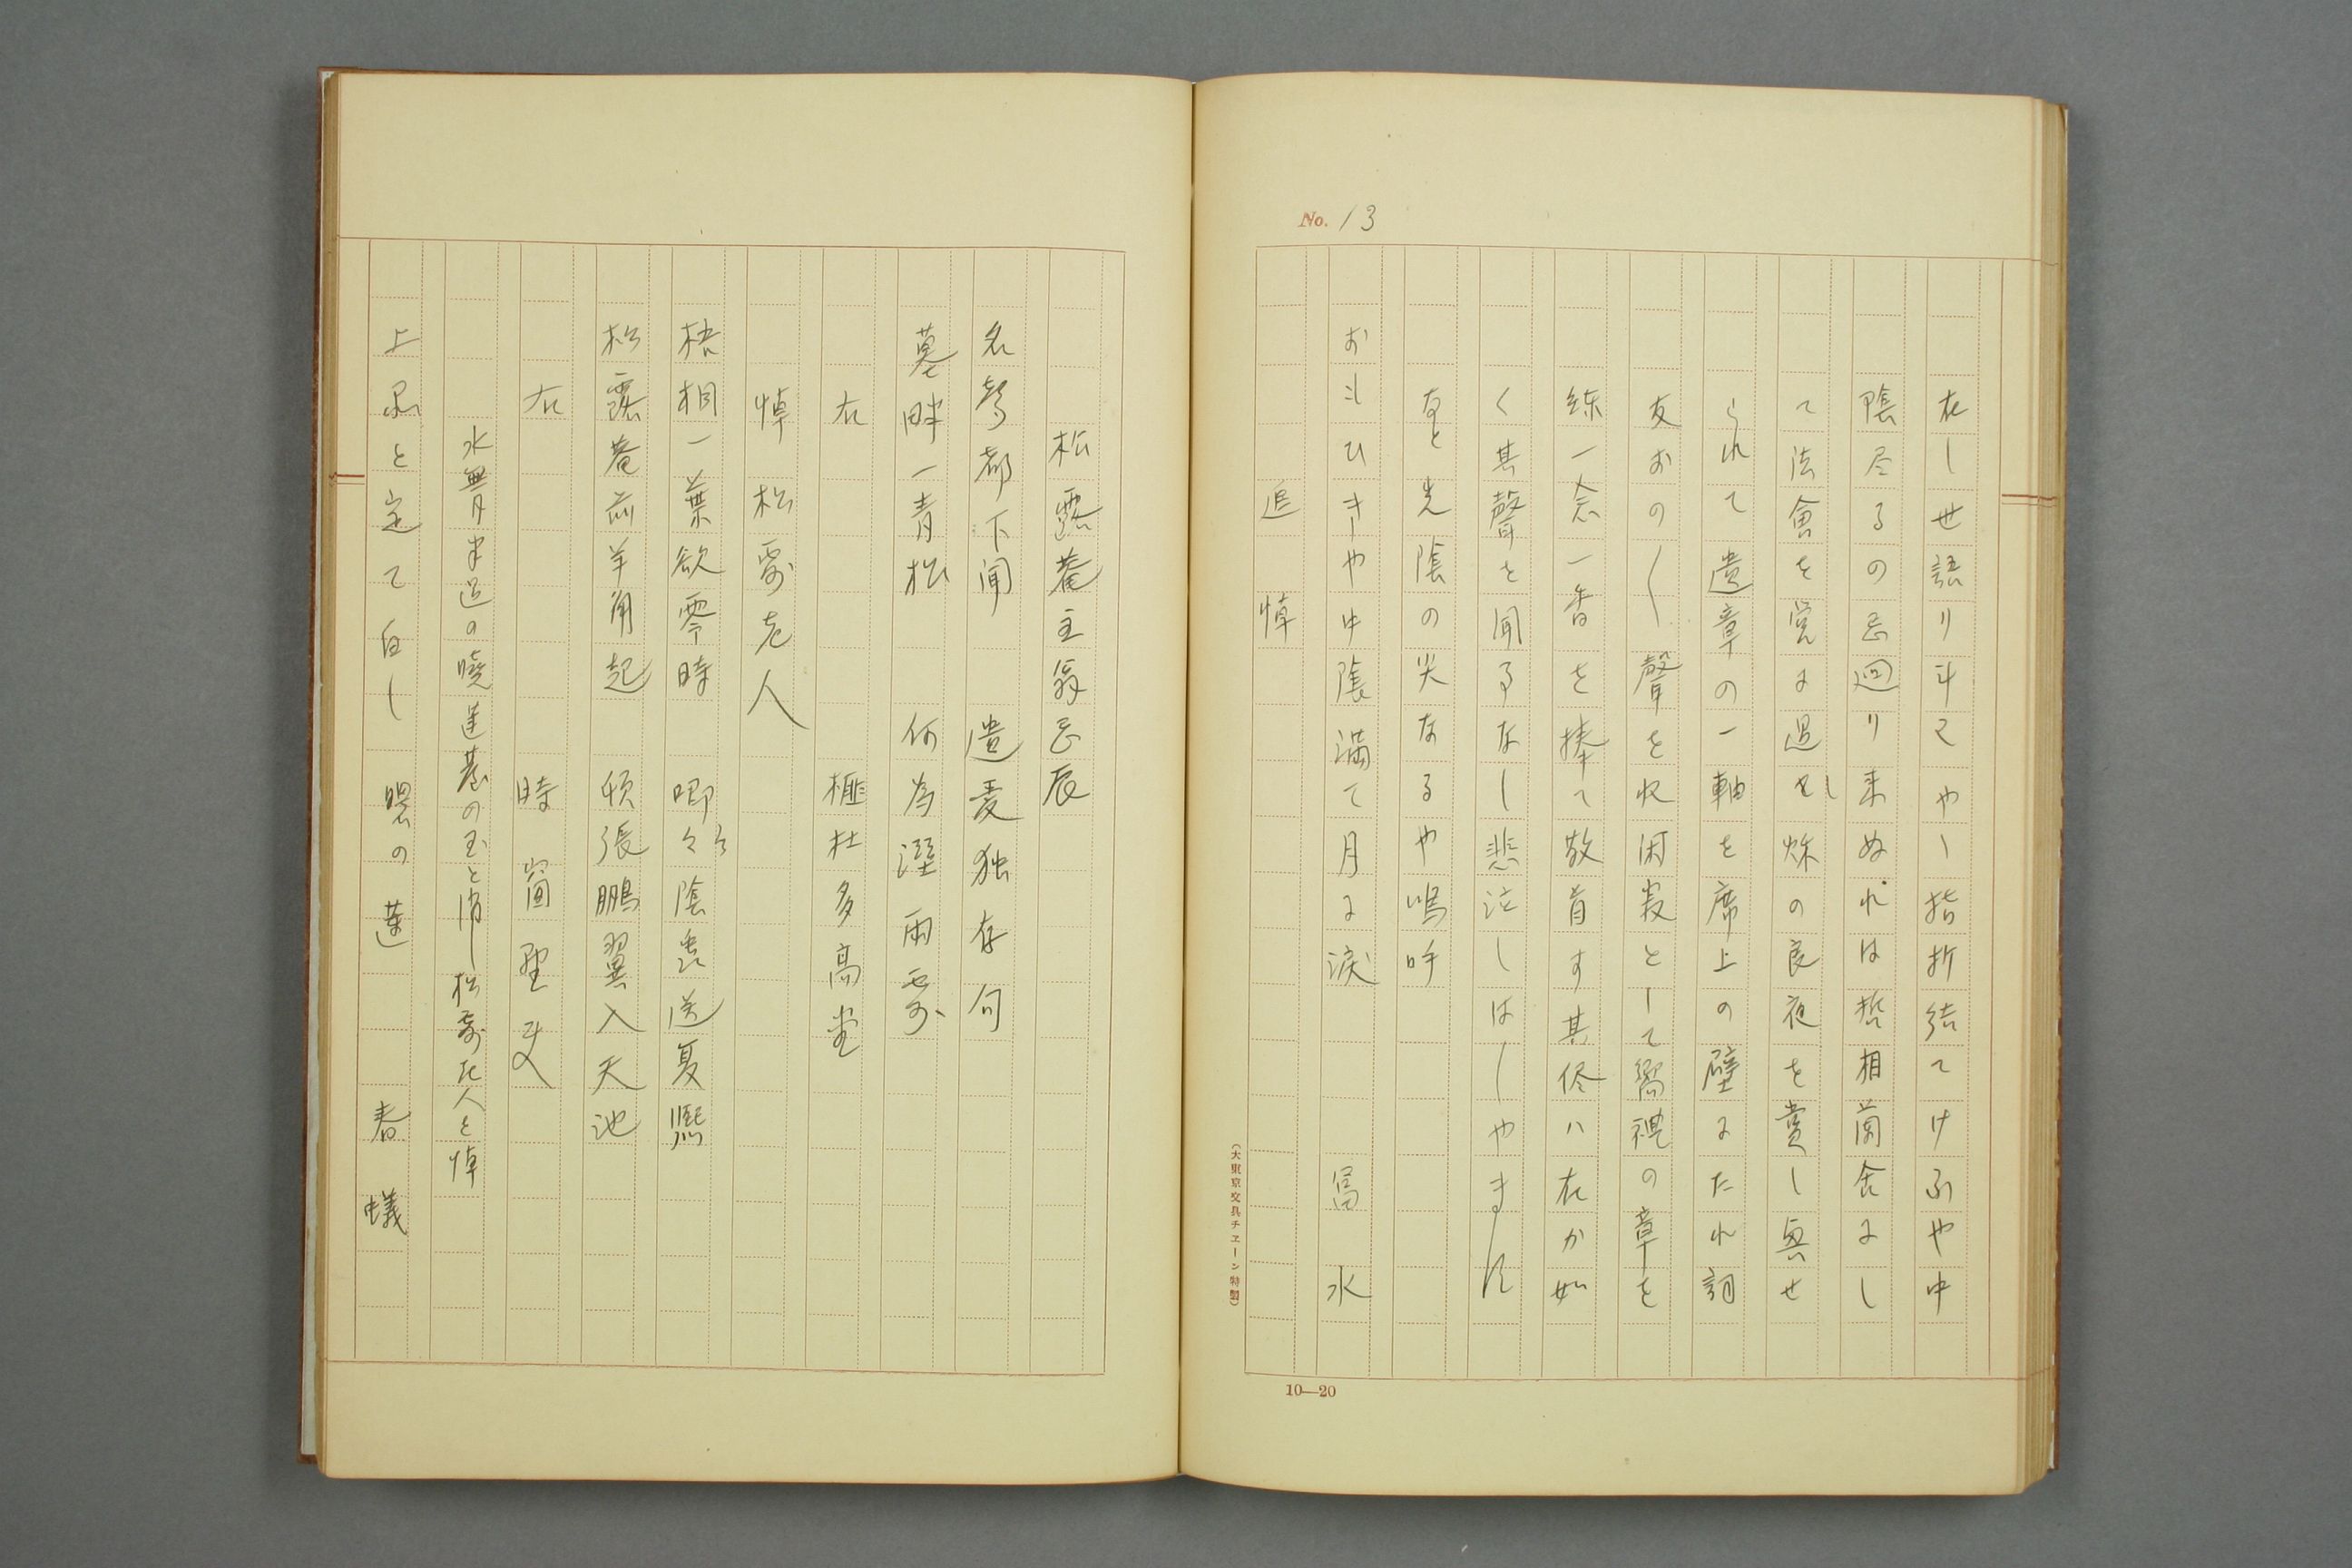 No. 13
在し世語り斗てやゝ指折結てけふや中
陰尽るの忌廻り来ぬれは哲相蘭舎よし
て法會を営よ過せし秌の良夜を賞し與せ
られて遺章の一軸を席上の壁よたれ詞
友おの〱聲を収困寂として嚮禮の章を
練一念一香を捧て敬首す其侭ハ在か如
く其聲を聞るなし悲泣しはしやます
なと光陰の尖なるや嗚呼
おもひきや中陰満て月よ涙　冨水
追悼
(大東京文具チェーン特製)
10—20
松露菴主翁忌辰
名聲都下聞　遺愛独存句
墓畔一青松　何為湿雨露
右　榧杜多高堂
悼松露老人
梧桐一葉欲零時　喞々陰蛩送夏熈
松露菴前羊角起　頎張鵬翼入天池
右　時窗聖叟
水無月半過の曉蓮葉の玉と消し松露老人を悼
上品と定て白し曉の蓮　春蟻